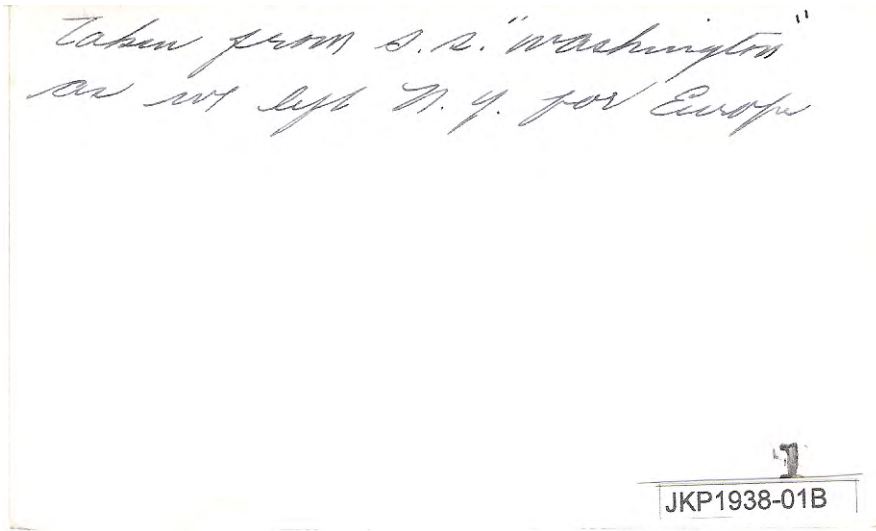 taken from S.S. "Washington"
as we left N.Y. for Europe
1
JKP1938-01B